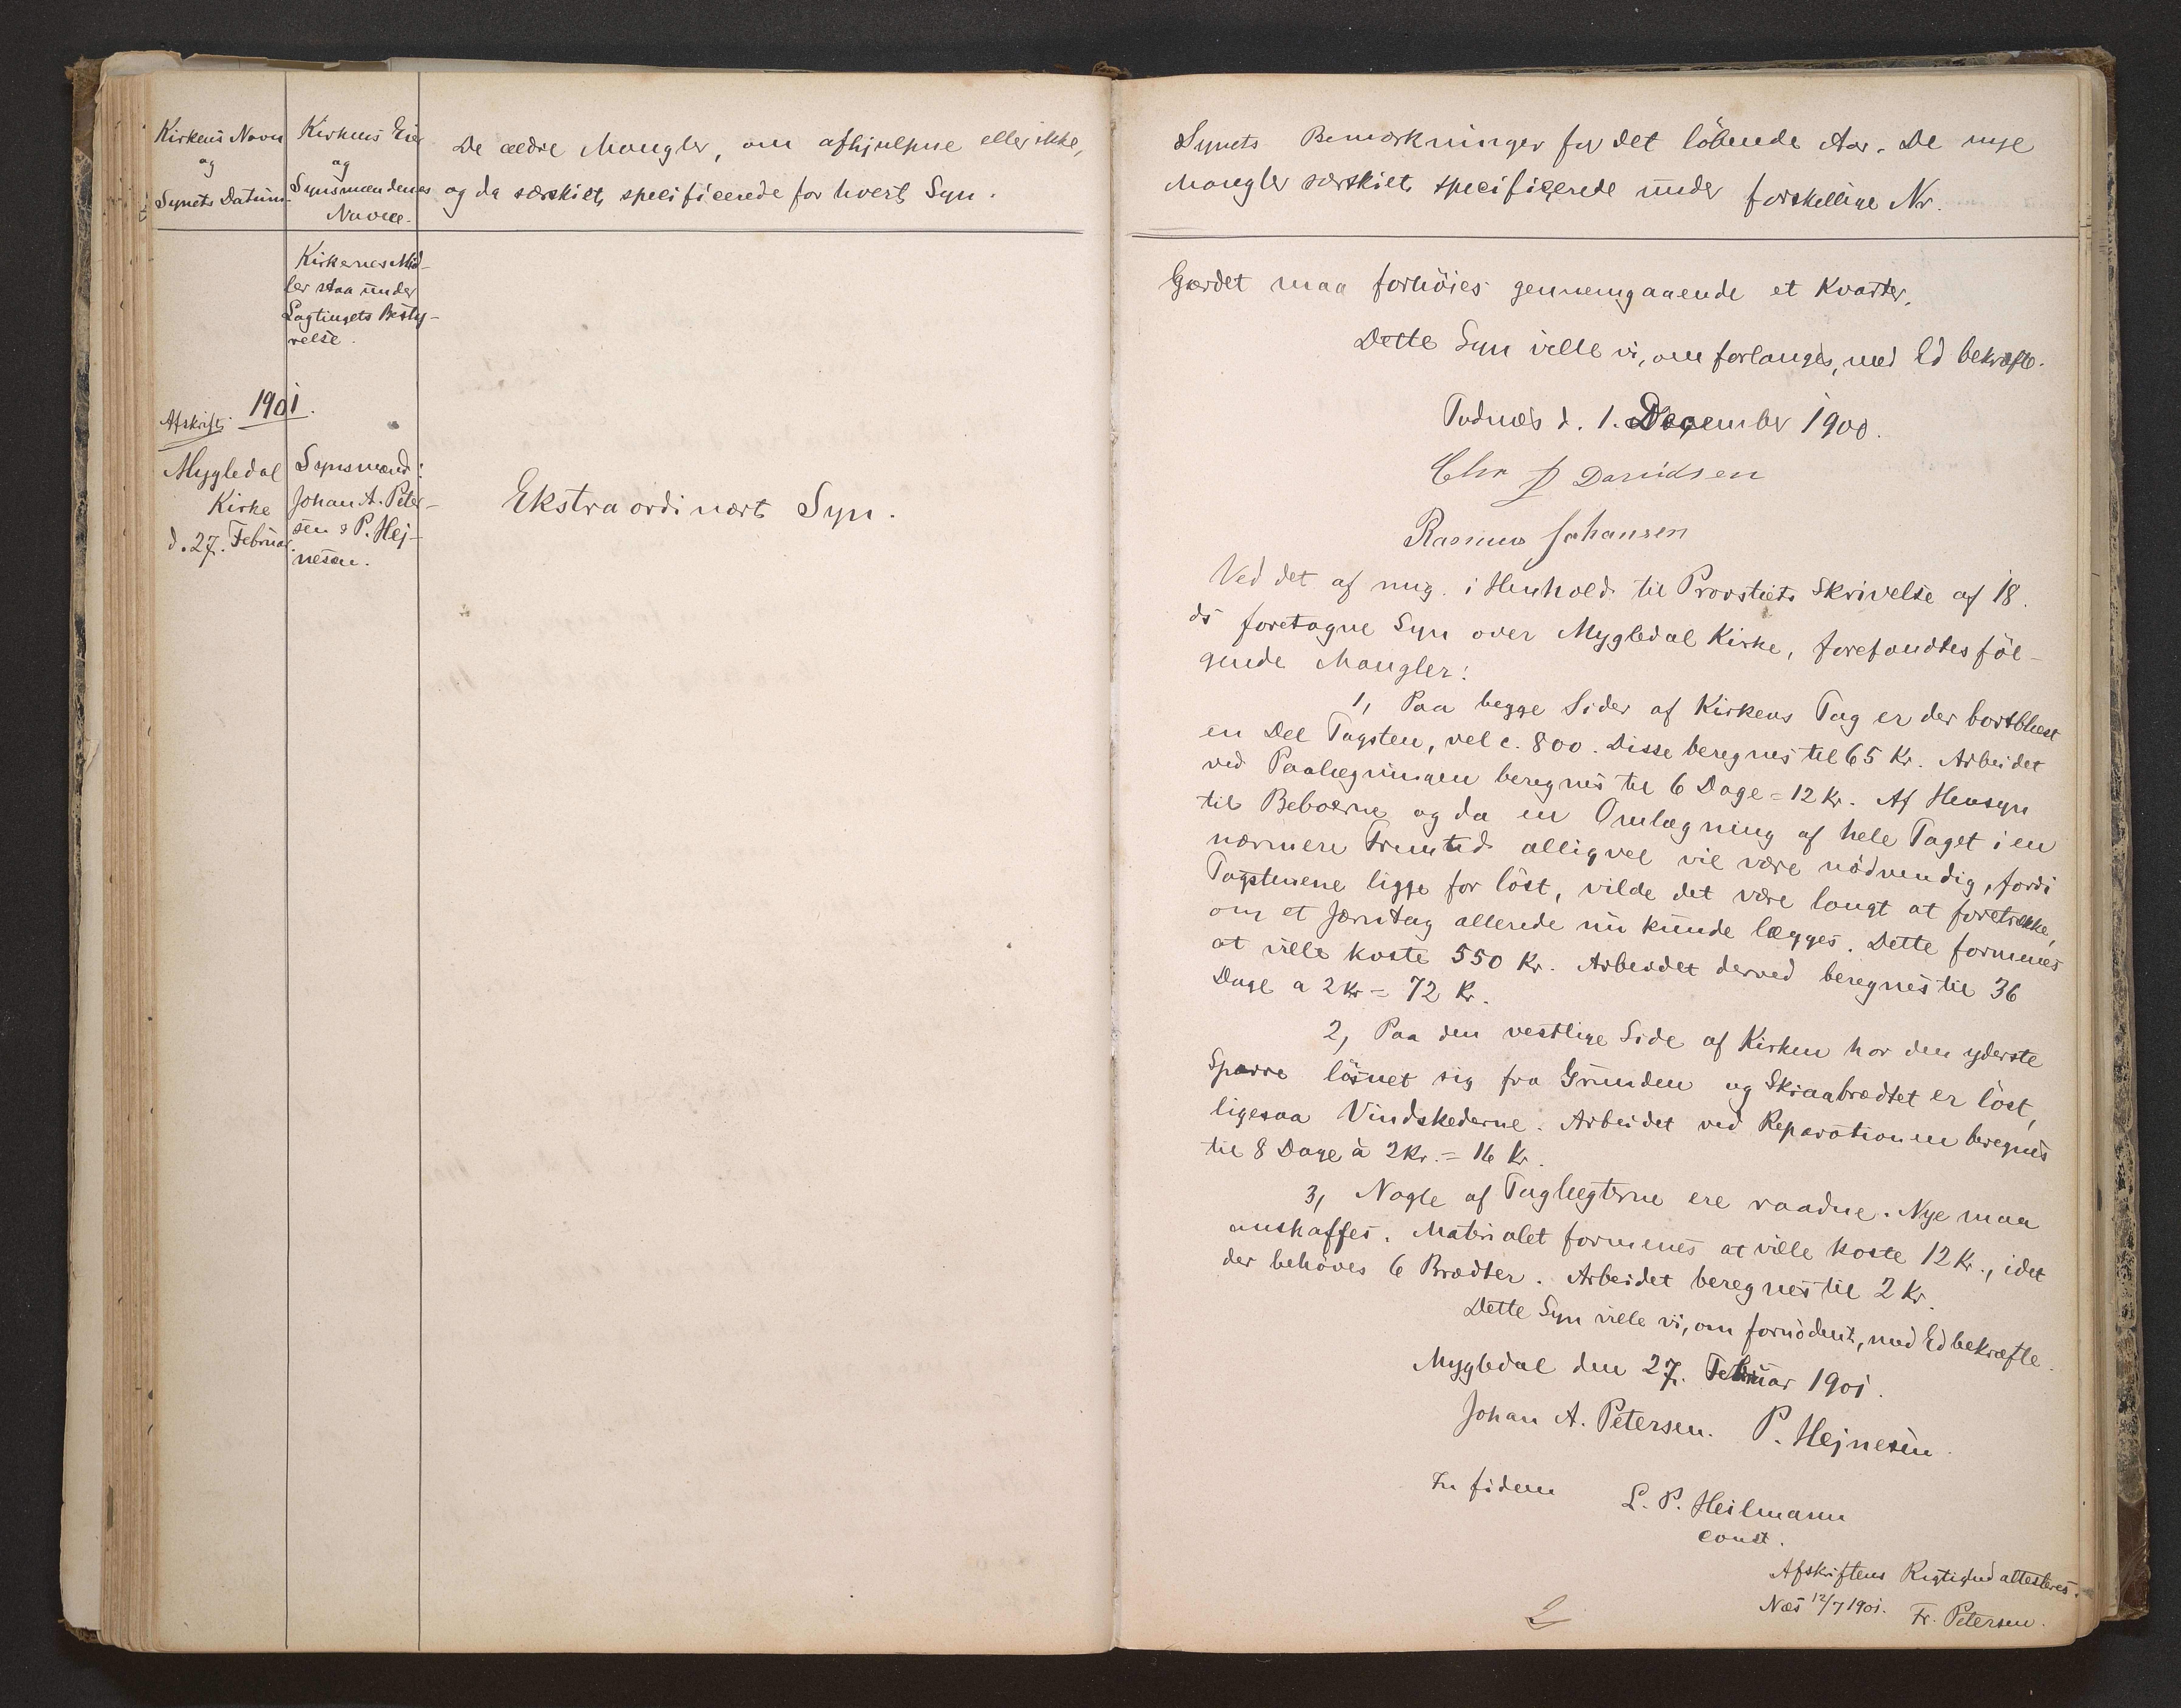 Kirkens Navn
og
Synets Datum.
Kirkens Eier
og
Synsmændenes
Navne.
De ældre Mangler, om afhjulpne eller ikke,
og da særskilt specificerede for hvert Syn.
Kirkernes Mid-
ler staa under
Lagtingets Besty-
relse.
1901.
Afskrift.
Mygledal
Kirke
d. 27. Februar.
Synsmænd:
Johan A. Peter-
sen & P. Hej-
nesen.
Ekstraordinært Syn.
Synets Bemærkninger for det löbende Aar. De nye
Mangler særskilt specificerede under forskellige Nr.
Gærdet maa forhöies gennemgaaende et Kvarter.
Dette Syn ville vi, om forlanges, med Ed bekræfte.
Podnæs d. 1. December 1900.
Chr D Davidsen
Rasmus Johansen
Ved det af mig. i Henhold til Provstiets Skrivelse af 18.
ds foretagne Syn over Mygledal Kirke, forefandtes föl-
gende Mangler:
1, Paa begge Sider af Kirkens Tag er der bortblæst
en Del Tagsten, vel c. 800. Disse beregnes til 65 Kr. Arbeidet
ved Paalægningen beregnes til 6 Dage = 12 Kr. Af Hensyn
til Beboerne og da en Omlægning af hele Taget i en
nærmere Fremtid alligvel vil være nödvendig, fordi
Tagstenene ligge for löst, vilde det være langt at foretrække,
om et Jerntag allerede nu kunde lægges. Dette formenes
at ville koste 550 Kr. Arbeidet derved beregnes til 36
Dage a 2 Kr = 72 Kr.
2, Paa den vestlige Side af Kirken har den yderste
Sparre lösnet sig fra Grunden og Skraabrædtet er löst,
ligesaa Vindskederne. Arbeidet ved Reparationen beregnes
til 8 Dage à 2 Kr. = 16 Kr.
3, Nogle af Taglægterne ere raadne. Nye maa
anskaffes. Materialet formenes at ville koste 12 Kr., idet
der behöves 6 Brædter. Arbeidet beregnes til 2 Kr.
Dette Syn ville vi, om fornödent, med Ed bekræfte.
Mygledal den 27. Februar 1901.
Johan A. Petersen. P. Hejnesen.
In fidem
L. P. Heilmann
const.
Afskriftens Rigtighed attesteres.
Næs 12/7 1901. Fr. Petersen.